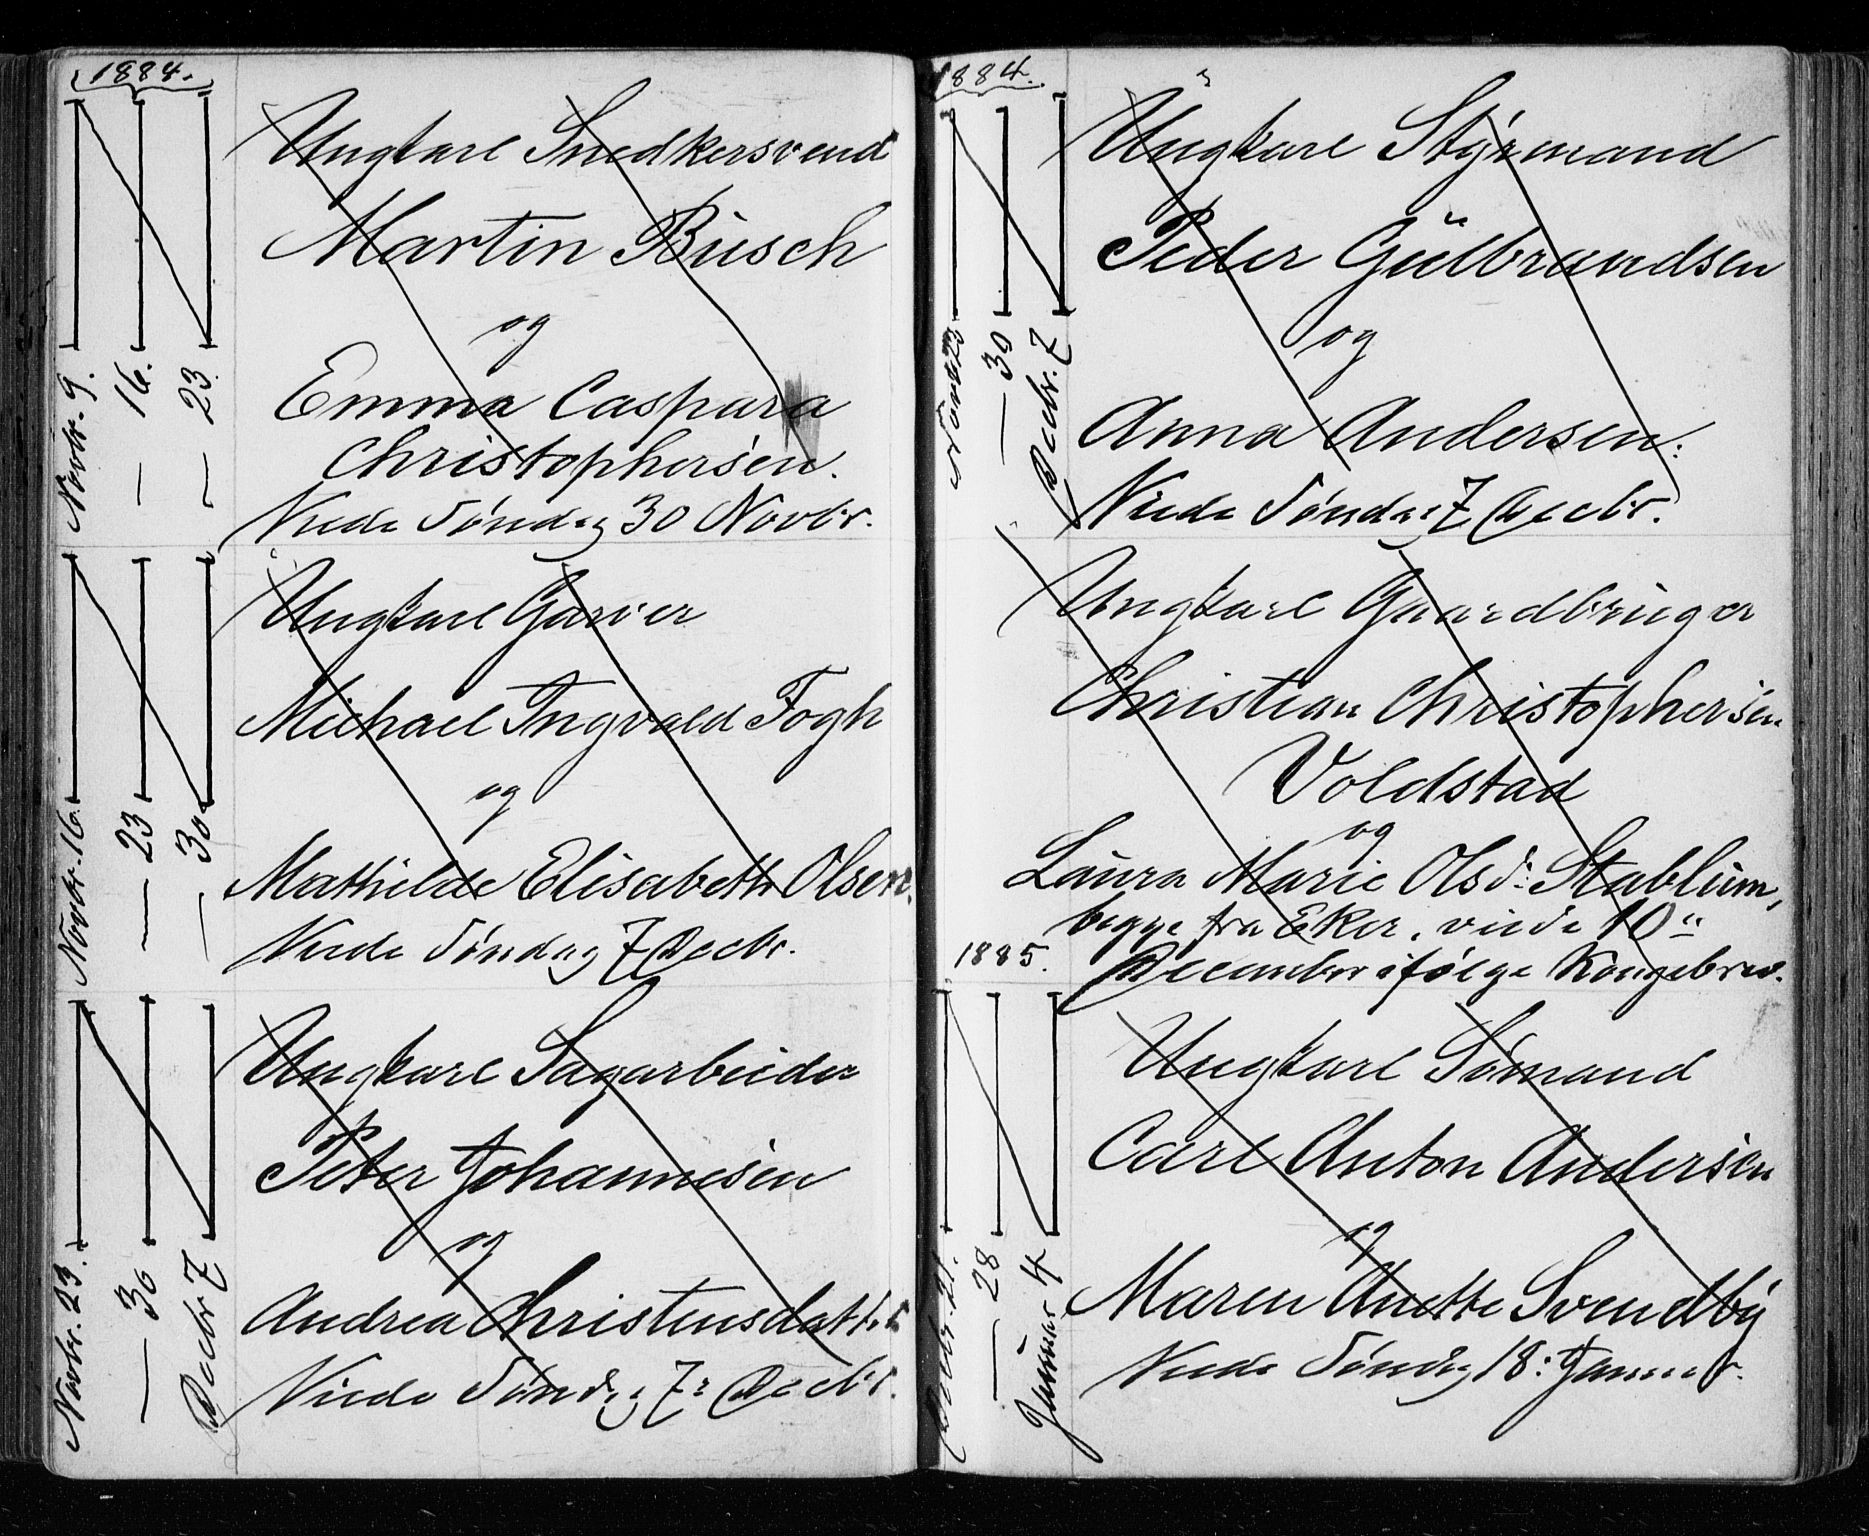 1884.
Novbr. 9.
— 16.
— 23.
Ungkarl Snedkersvend
Martin Busch
og
Emma Caspara
Christophersen.
Viede Søndag 30 Novbr.
Novbr. 16.
— 23
— 30
Ungkarl Garver
Michael Ingvald Fogh
og
Mathilde Elisabeth Olsen.
Viede Søndag 7 Decbr.
Novbr. 23.
— 30
Decbr 7
Ungkarl Sagarbeider
Peter Johannesen
og
Andrea Christensdatter
Viede Søndag 7: Decbr.
1884.
Novbr 23
— 30
Decbr. 7
Ungkarl Styrmand
Peder Gülbrandsen
og
Anna Andersen.
Viede Søndag 7 Decbr.
Ungkarl Gaardbruger
Christian Christophersen
Voldstad
og
Laura Marie Olsd: Stablum,
begge fra Eker, viede 10de
December ifølge Kongebrev.
1885.
Decbr. 21.
— 28
Januar 4
Ungkarl Sømand
Carl Anton Andersen
og
Maren Anette Svendby
Viede Søndag 18: Januar.